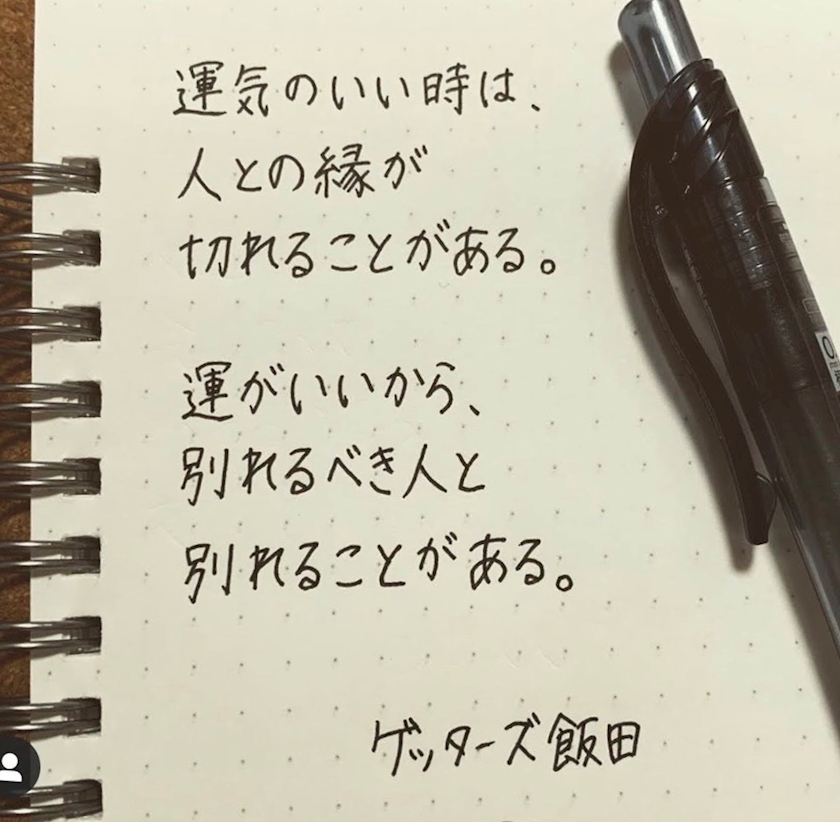 運気のいい時は、
人との縁が
切れることがある。
運がいいから、
別れるべき人と
別れることがある。
ゲッターズ飯田